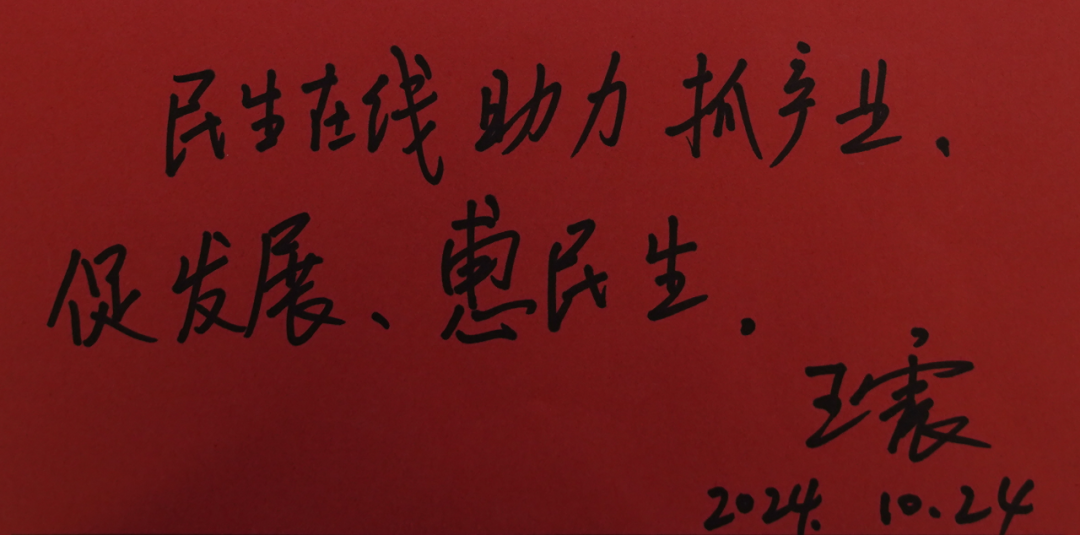 民生在线 助力 抓产业.
促发展、惠民生.
王
2024. 10.24